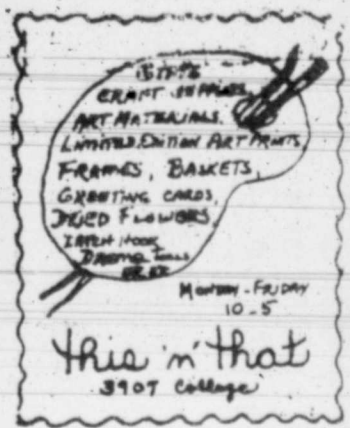 GIFTS
CRAFT SUPPLIES
ART MATERIALS,
LIMITED EDITION ART PRINTS
FRAMES, BASKETS,
GREETING CARDS,
DRIED FLOWERS
LATCH HOOK
MONDAY - FRIDAY
10-5
this 'n' that
3907 College